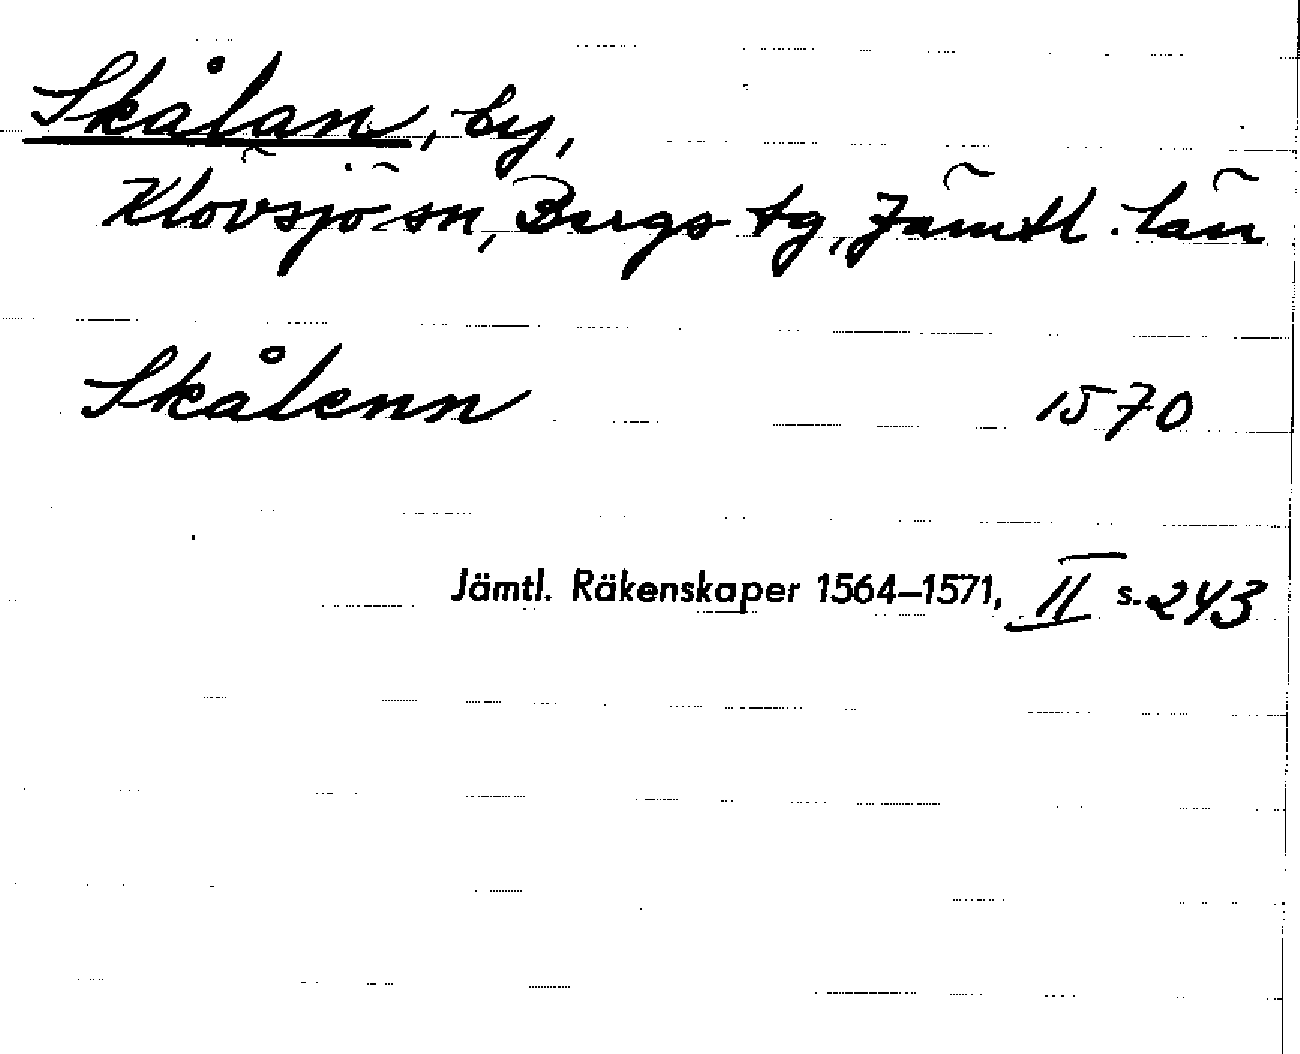 Skålan, by,
Klövsjö sn, Bergs tg, Jämtl. län
Skålenn 1570
Jämtl. Räkenskaper 1564–1571, II s. 243